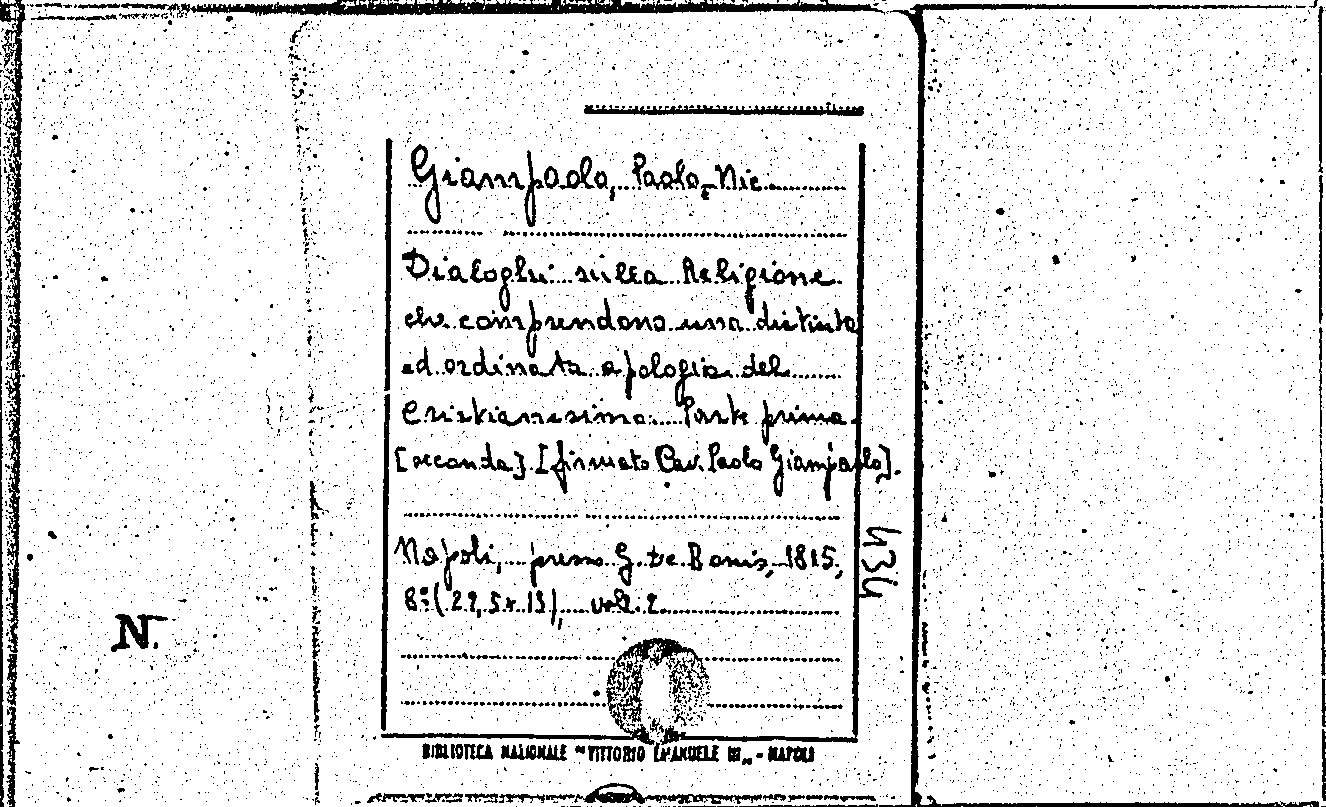 Giampaolo, Paolo, Nic.
Dialoghi sulla Religione
che comprendono una distinta
ed ordinata apologia del
Cristianesimo. Parte prima.
[seconda]. [firmato Cav. Paolo Giampaolo].
Napoli, presso G. De Bonis, 1815,
8° (22,5x13), voll. 2.
434
N.
BIBLIOTECA NAZIONALE "VITTORIO EMANUELE III„ - NAPOLI